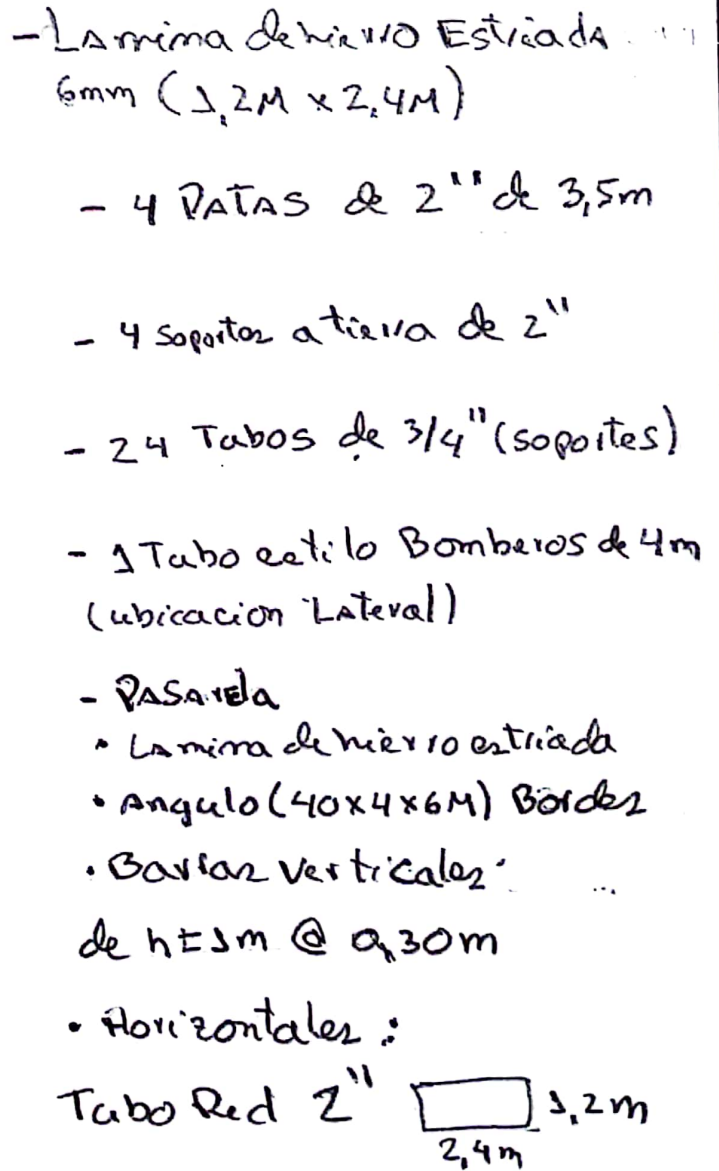 - Lamina de hierro Estriada
6mm (1,2M x 2,4M)
- 4 PATAS de 2" de 3,5m
- 4 soportes a tierra de 2"
- 24 Tubos de 3/4" (soportes)
- 1 Tubo estilo Bomberos de 4m
(ubicacion Lateral)
- PASArela
• Lamina de hierro estriada
• Angulo (40x4x6M) Bordes
• Barras verticales
de h=1m @ 0,30m
• Horizontales:
Tubo Red 2" 1,2m
2,4m